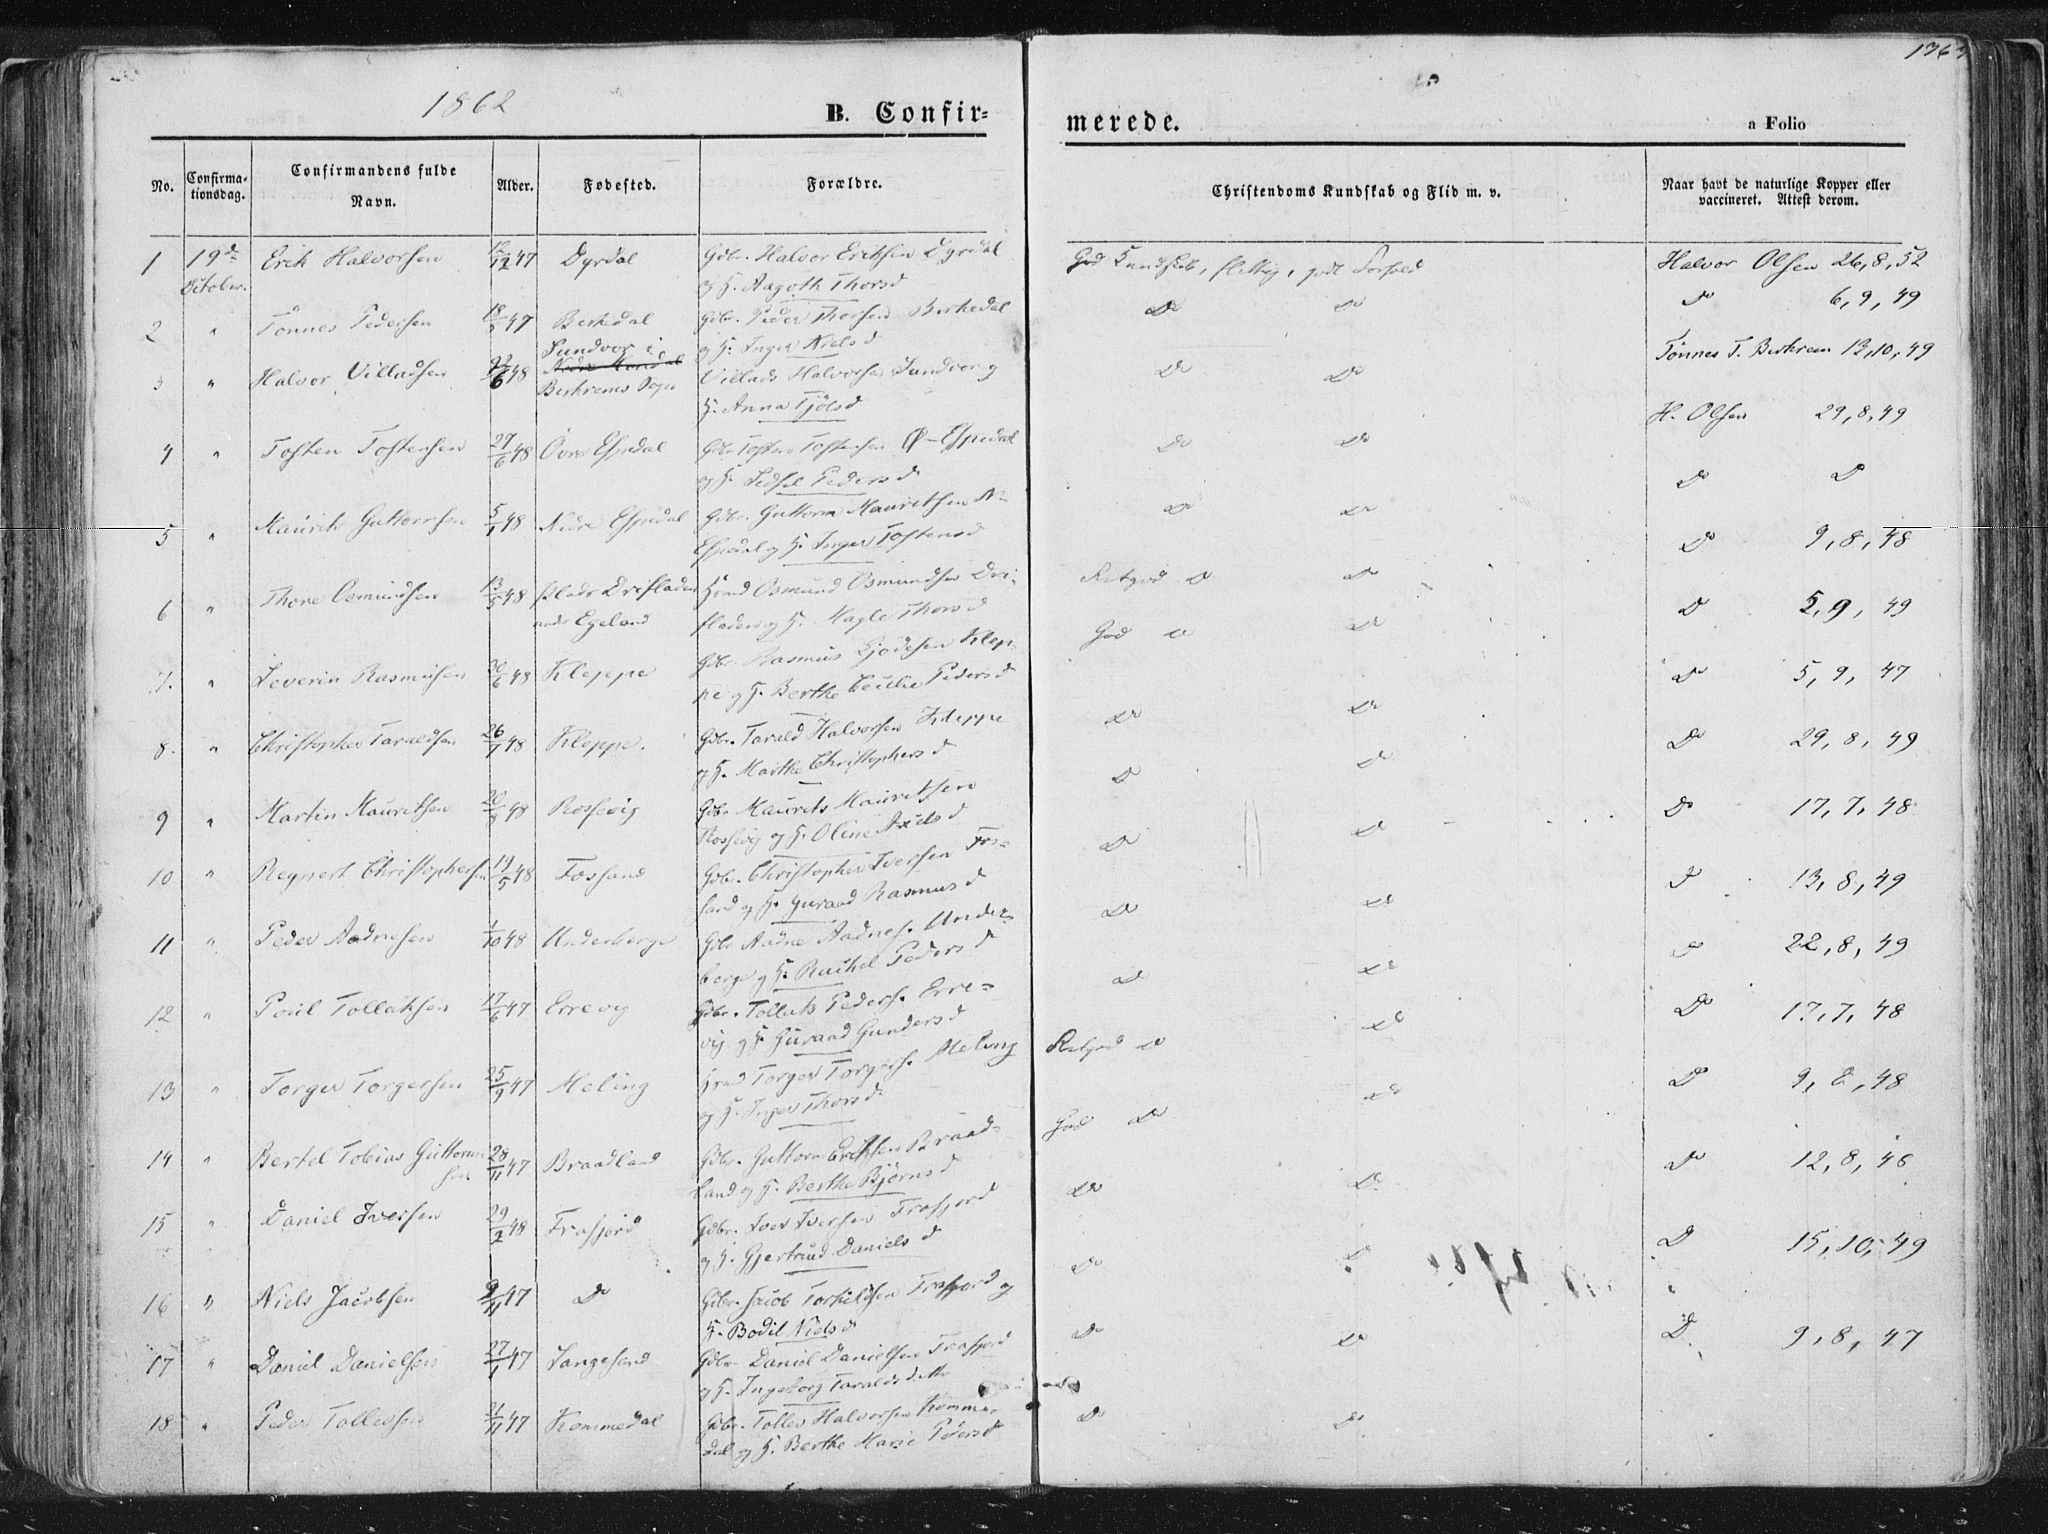 1862
B. Confir=
merede.
a Folio
No. Confirma-tionsdag. Confirmandens fulde Navn. Alder. Fødested. Forældre. Christendoms Kundskab og Flid m. v. Naar havt de naturlige Kopper eller vaccineret. Attest derom.
1 19de October. Erik Halvorsen 12/12 47 Dyrdal Gdbr. Halvor Eriksen Dyrdal God Kundskab, flittig, godt Forhold Halvor Olsen 26,8,52
og H. Aagoth Thorsd
2 " Tønnes Pedersen 18/ 47 Berkedal Gdbr. Peder Thorsen Berkedal Do Do Do 6,9,49
og H. Inger Nielsd
3 " Halvor Villadsen 6 48 Sundvor i Villads Halvorsen Sundvor og Do Do Tönnes T. Birkrem 13,10,49
Birkrems Sogn H. Anna Tjølsd
4 " Tosten Tostensen 27/6 48 Övre Espedal Gdbr Tosten Tostensen Ø-Espedal Do Do H. Olsen 29,8,49
og H. Sidsel Pedersd
5 " Maurits Guttormsen 5/1 48 Nedre Espedal Gdbr. Guttorm Mauritsen N- Do Do Do Do
Espedal og H. Inger Tostensd
6 " Thore Osmundsen 13/5 48 Plads Drefladen Hmd Osmund Osmundsen Dre- Retgod Do Do Do 9,8,48
under Egeland fladen og H. Magle Thorsd
7. " Severin Rasmusen 30/6 48 Kleppe Gdbr. Rasmus Gjødesen Klep- God Do Do Do 5,9,49
pe og H. Berthe Cecilie Pedersd
8. " Christopher Taraldsen 26/1 48 Kleppe. Gdbr. Tarald Halvorsen Kleppe Do Do Do 5,9,47
og H. Marthe Christophersd
9 " Martin Mauritsen 20/ 48 Rossevig Gdbr. Maurits Mauritsen Do Do Do 29,8,49
Rossevig og H. Oline Axelsd
10 " Regnert Christophersen 19/5 48 Fossand Gdbr. Christopher Iversen Fos- Do Do Do 17,7,48
sand og H. Guraad Rasmusd
11 " Peder Aadnesen 1/10 48 Underberge Gdbr Aadne Aadnes. Under- Do Do Do 13,8,49
berge og H. Rachel Pedersd
12 " Poul Tollaksen 17/6 47 Errevig Gdbr. Tollak Peders. Erre- Do Do Do 22,8,49
vig og H. Guraad Gundersd
13 " Torger Torgersen 25/9 47 Meling Hmd Torger Torgers. Meling Retgod Do Do Do 17,7,48
og H. Inger Thorsd
14 " Bertel Tobias Guttormsen 28/11 47 Braadland Gdbr. Guttorm Eriksen Braad- God Do Do Do 9,8,48
land og H. Berthe Bjørnsd
15 " Daniel Iversen 29/2 48 Frafjord Gdbr. Iver Iversen Frafjord Do Do Do 12,8,48
og H. Gjertrud Daniels d
16 " Niels Jacobsen 9/11 47 Do Gdbr. Jacob Torkildsen Frafjord og Do Do Do 15,10,49
H. Bodil Nielsd
17 " Daniel Danielsen 27/1 47 Langesand Gdbr. Daniel Danielsen Frafjord Do Do Do 9,8,47
og H. Ingeborg Taraldsdatter
18 " Peder Tollevsen 21/11 47 Kommedal Gdbr. Tollev Halvorsen Komme- Do Do
dal og H. Berthe Marie Pedersd